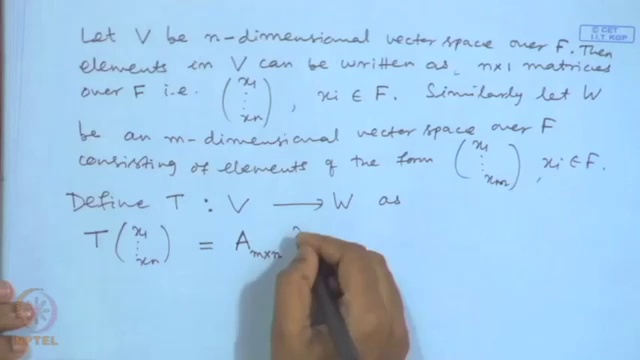 © CET
I.I.T. KGP
Let V be n-dimensional vector space over F. Then
elements in V can be written as, n×1 matrices
over F i.e. (x1 ⋮ xn), xi ∈ F. Similarly let W
be an m-dimensional vector space over F
consisting of elements of the form (x1 ⋮ xm), xi ∈ F.
Define T : V ⟶ W as
T(x1 ⋮ xn) = A m×n
NPTEL